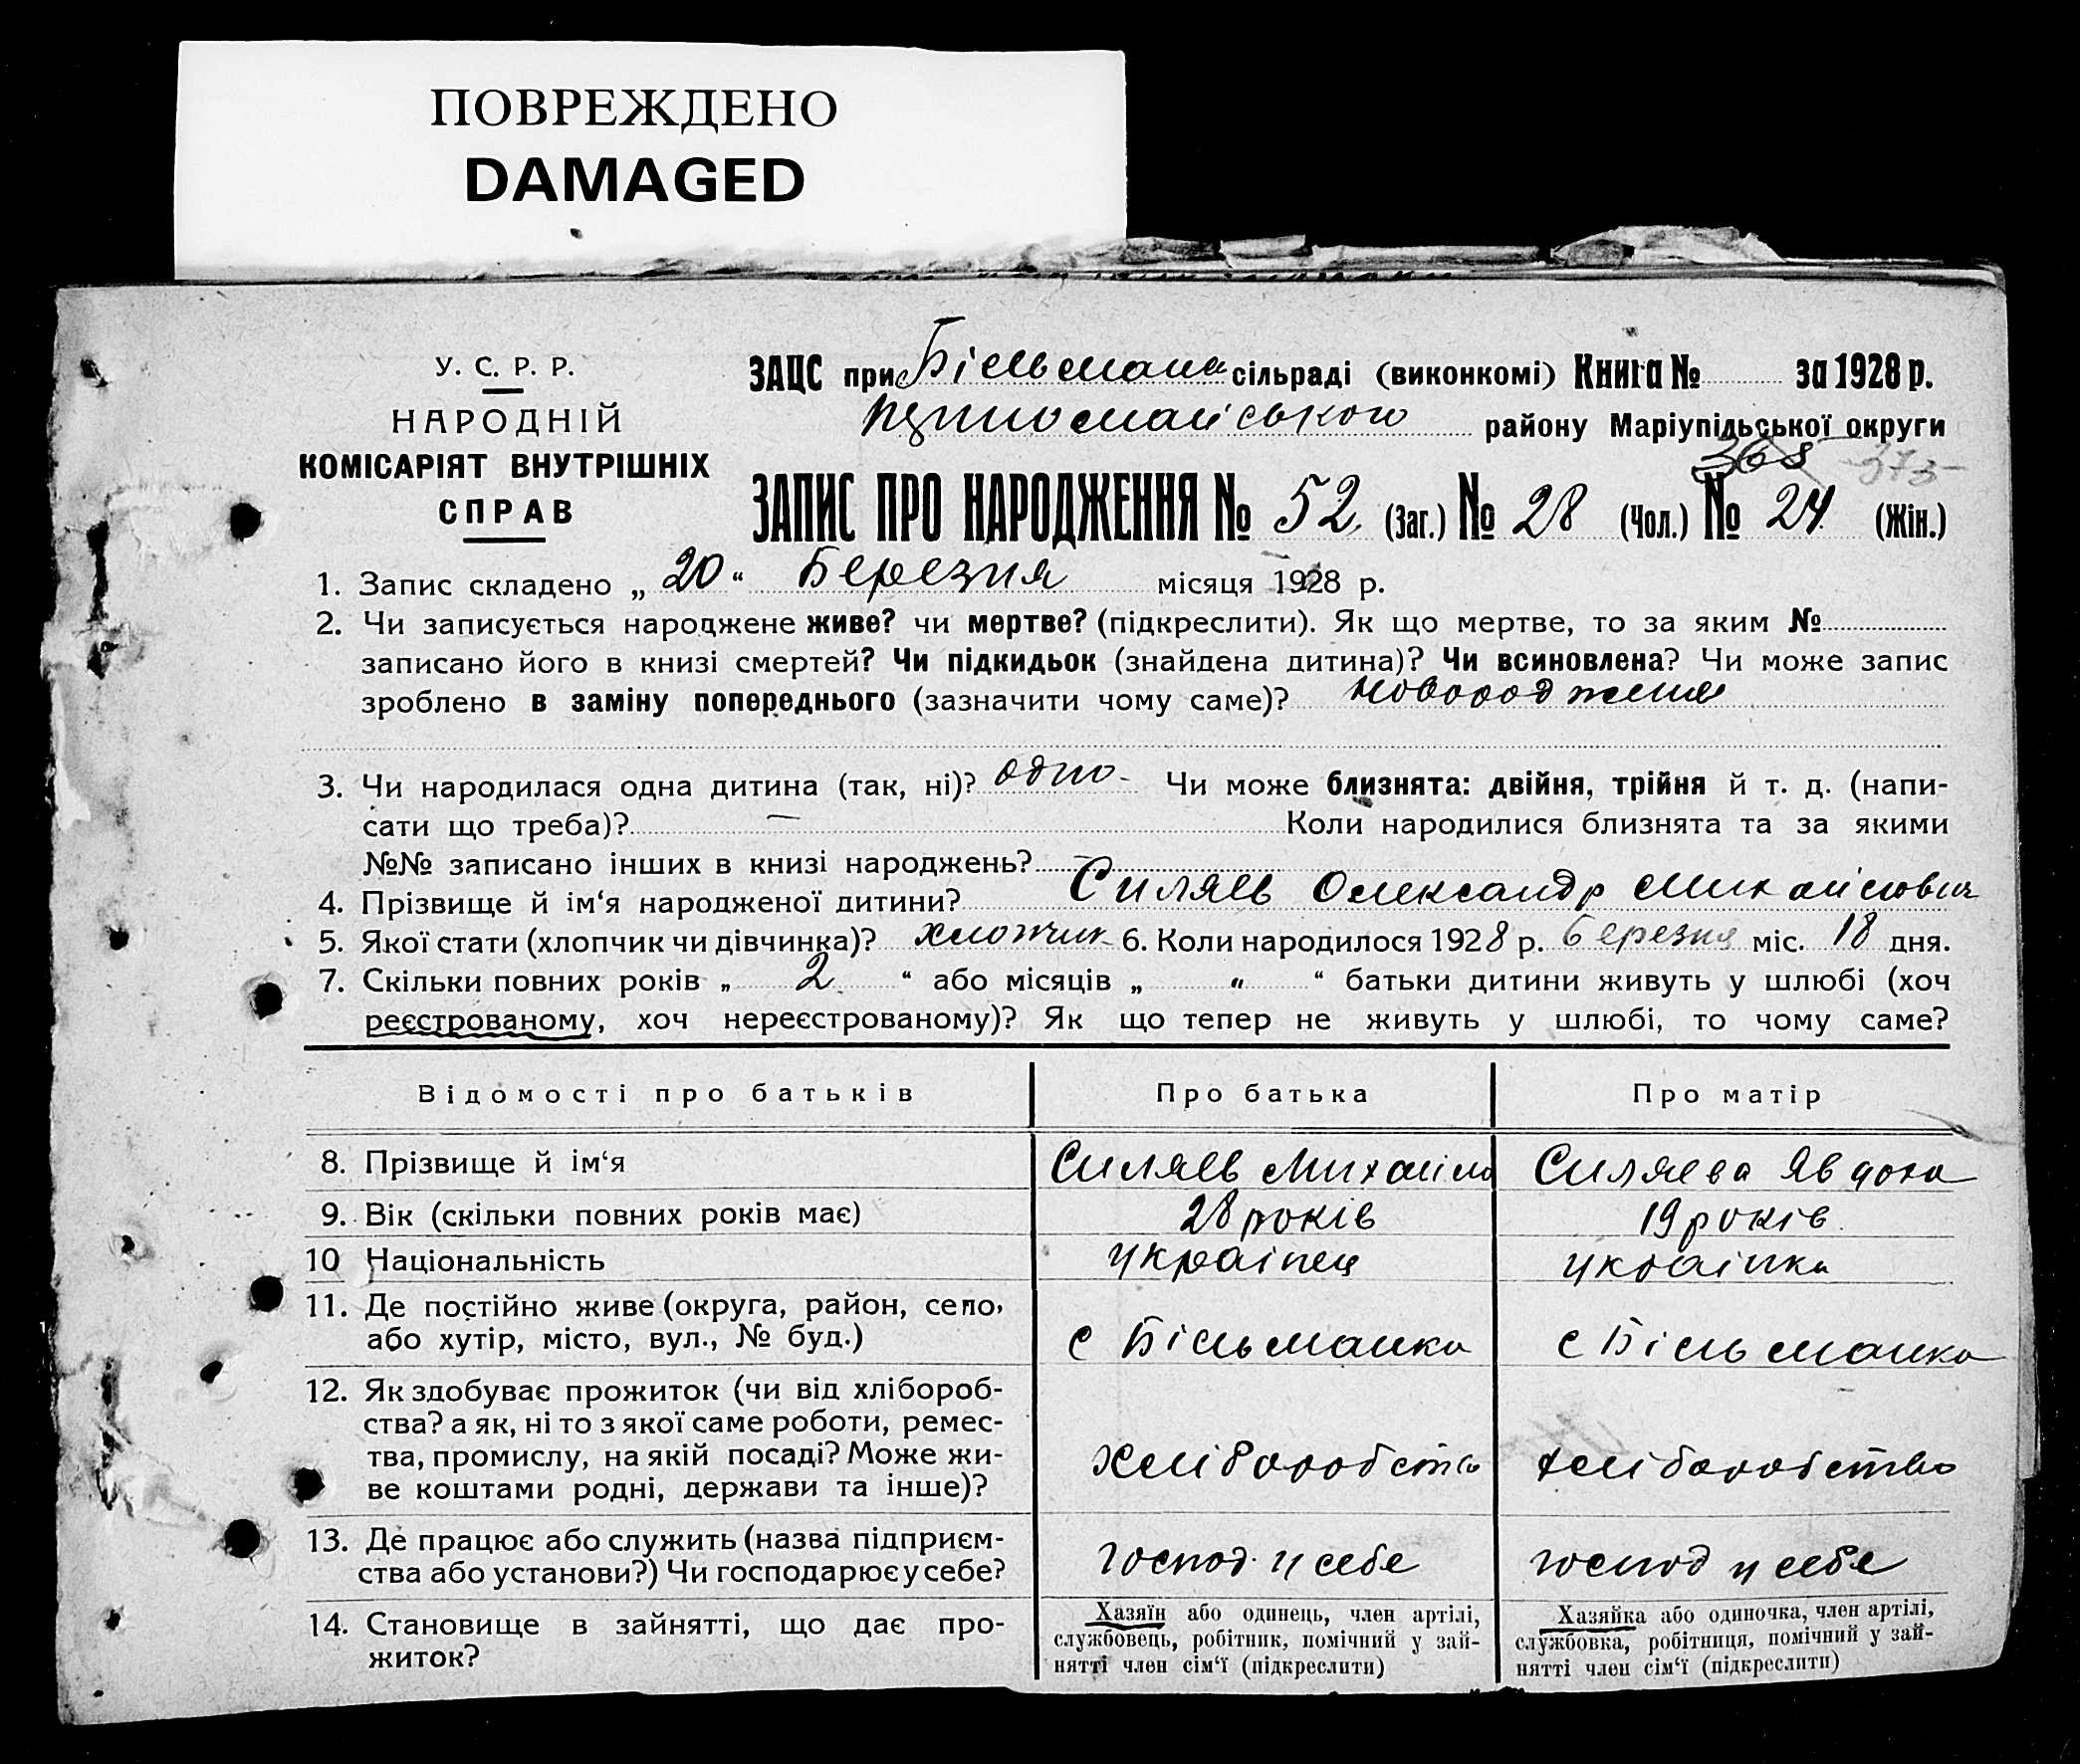 ПОВРЕЖДЕНО
DAMAGED
У. С. Р. Р.
НАРОДНІЙ
КОМІСАРІЯТ ВНУТРІШНІХ
СПРАВ
ЗАЦС при Більмана сільраді (виконкомі) Книга № за 1928 р.
району Маріупільської округи
368 373
ЗАПИС ПРО НАРОДЖЕННЯ № 52 (Заг.) № 28 (Чол.) № 24 (Жін.)
1. Запис складено „ 20 “ Березня місяця 1928 р.
2. Чи записується народжене живе? чи мертве? (підкреслити). Як що мертве, то за яким №
записано його в книзі смертей? Чи підкидьок (знайдена дитина)? Чи всиновлена? Чи може запис
зроблено в заміну попереднього (зазначити чому саме)?
3. Чи народилася одна дитина (так, ні)? одно - Чи може близнята: двійня, трійня й т. д. (напи-
сати що треба)? — Коли народилися близнята та за якими
№№ записано інших в книзі народжень? —
4. Прізвище й ім‘я народженої дитини? Силяєв Олександр Михайлович
5. Якої стати (хлопчик чи дівчинка)? хлопчик 6. Коли народилося 1928 р. березня міс. 18 дня.
7. Скільки повних років „ 2 “ або місяців „ “ “ батьки дитини живуть у шлюбі (хоч
реєстрованому, хоч нереєстрованому)? Як що тепер не живуть у шлюбі, то чому саме?
Відомості про батьків Про батька Про матір
8. Прізвище й ім‘я Силяєв Михайло Силяєва Явдоха
9. Вік (скільки повних років має) 28 років 19 років
10 Національність українец українка
11. Де постійно живе (округа, район, село,
або хутір, місто, вул., № буд.) с Більманка с Більманка
12. Як здобуває прожиток (чи від хлібороб-
ства? а як, ні то з якої саме роботи, ремес-
тва, промислу, на якій посаді? Може жи-
ве коштами родні, держави та інше)? хліборобство хліборобство
13. Де працює або служить (назва підприєм-
ства або установи?) Чи господарює у себе? господ. у себе господ у себе
14. Становище в зайнятті, що дає про-
житок?
Хазяїн або одинець, член артілі,
службовець, робітник, помічний у зай-
нятті член сім‘ї (підкреслити)
Хазяйка або одиночка, член артілі,
службовка, робітниця, помічний у зай-
нятті член сім‘ї (підкреслити)